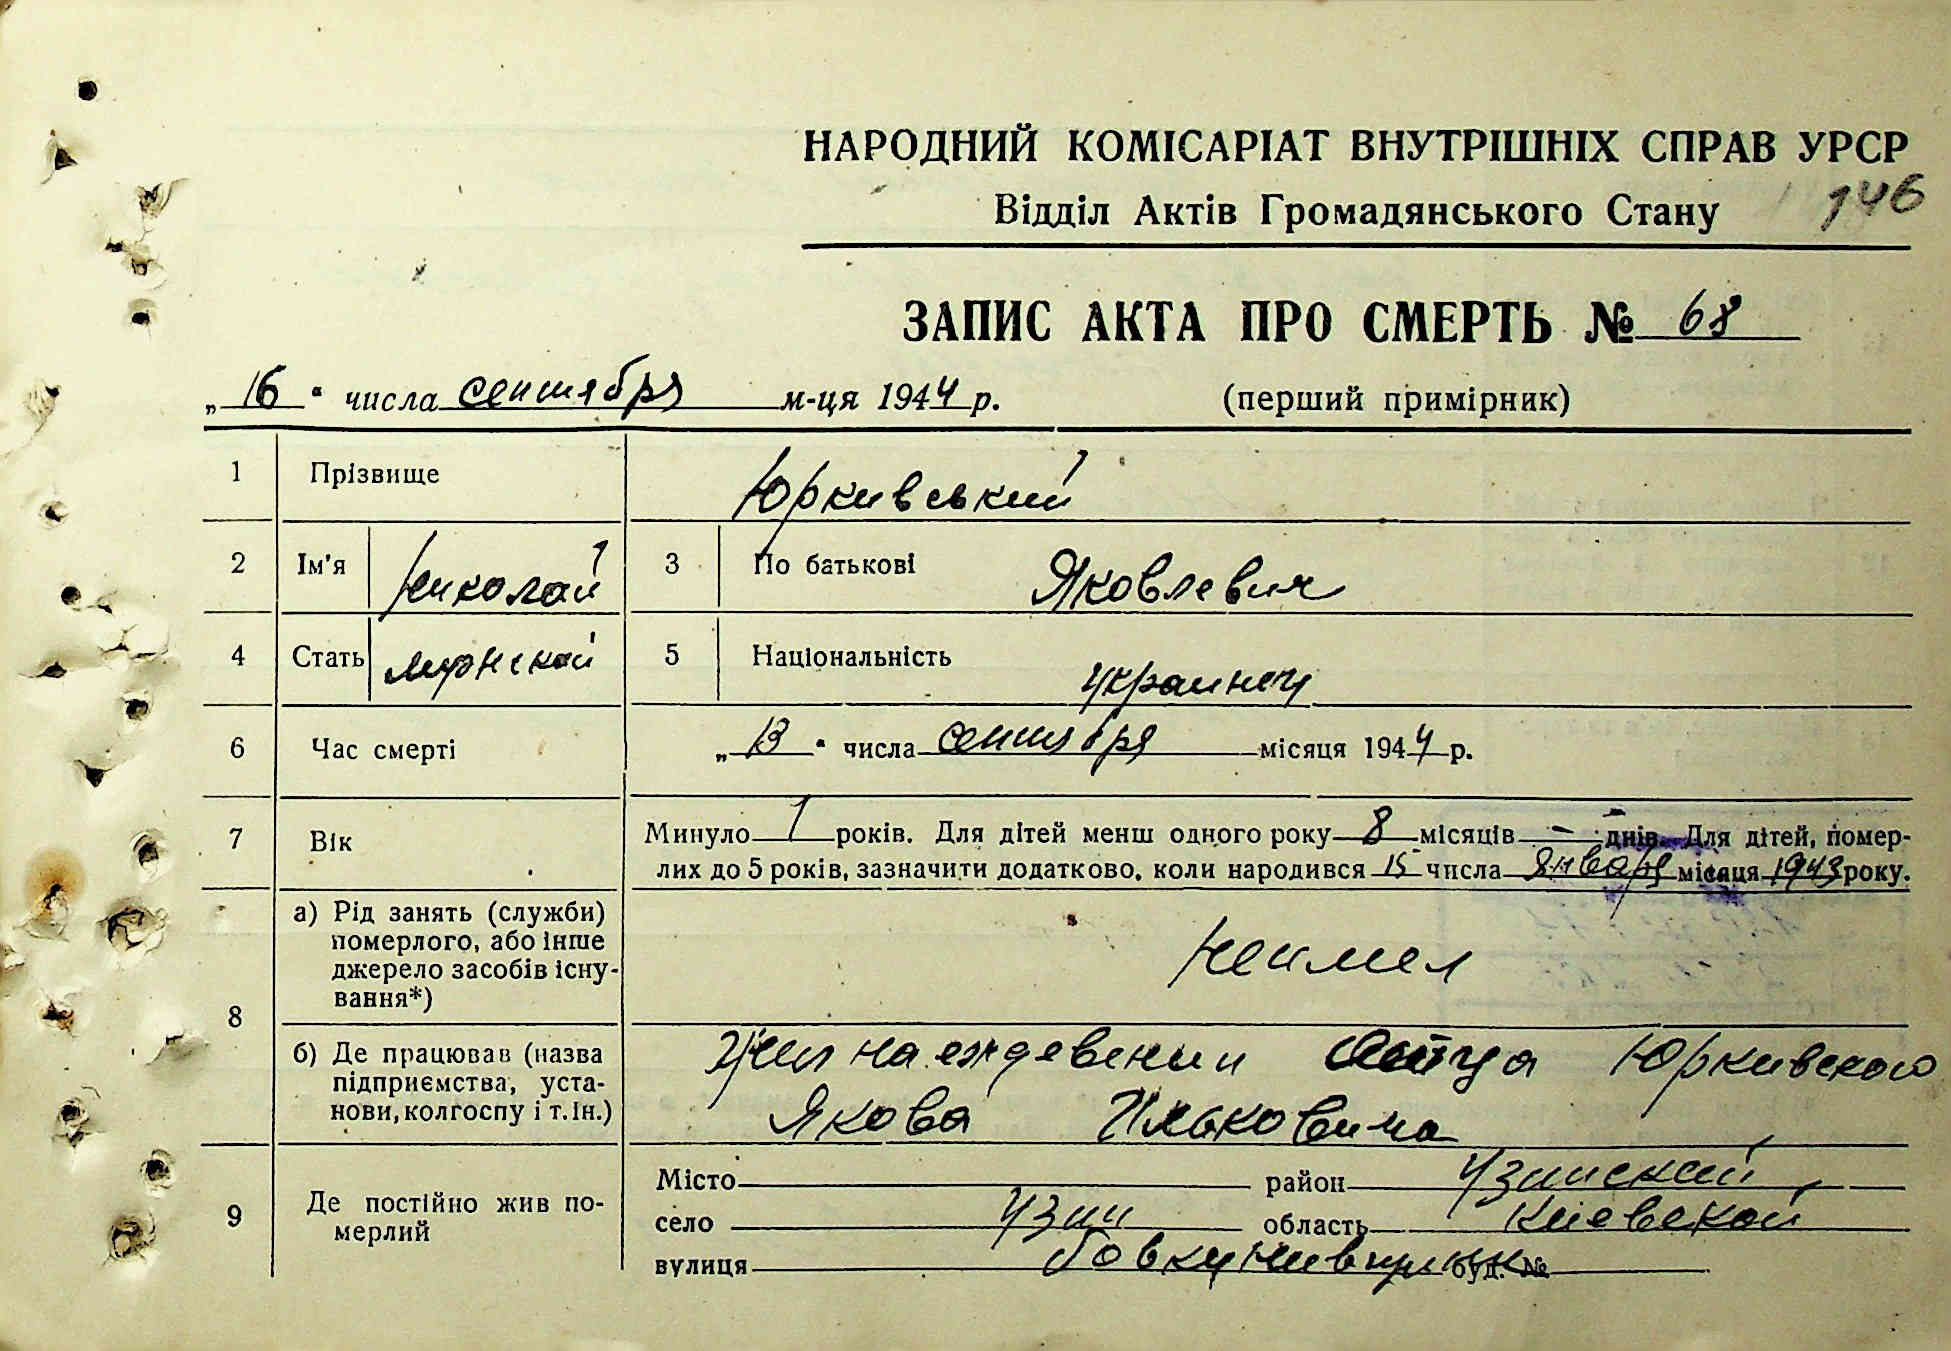 НАРОДНИЙ КОМІСАРІАТ ВНУТРІШНІХ СПРАВ УРСР
Відділ Актів Громадянського Стану
146
ЗАПИС АКТА ПРО СМЕРТЬ № 68
„16“ числа сентября м-ця 1944 р. (перший примірник)
1 Прізвище Юркивський
2 Ім'я Николай 3 По батькові Яковлевич
4 Стать мужской 5 Національність украинец
6 Час смерті „13“ числа сентября місяця 1944 р.
7 Вік Минуло 1 років. Для дітей менш одного року 8 місяців — днів. Для дітей, помер-
лих до 5 років, зазначити додатково, коли народився 15 числа января місяця 1943 року.
8 а) Рід занять (служби)
померлого, або інше
джерело засобів існу-
вання*) Неимел
б) Де працював (назва
підприємства, уста-
нови, колгоспу і т. ін.)
Жил на еждевении Отца Юркивского
Якова
9 Де постійно жив по-
мерлий
Місто район Узинский
село Узин область Киевской
вулиця буд. №